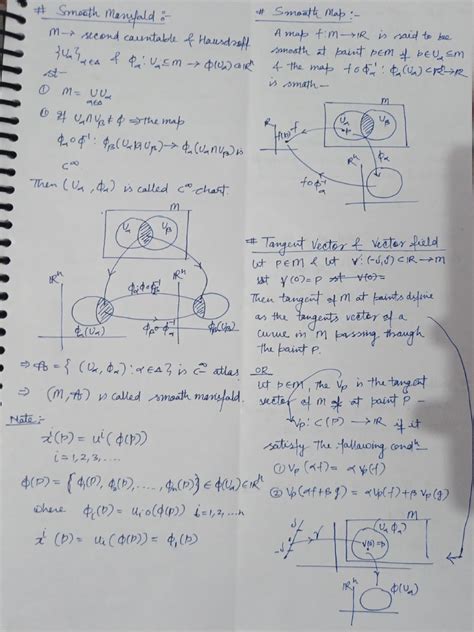 # Smooth Manifold :-
M → second countable & Hausdroff
{Uα}α∈Δ & ϕα : Uα ⊆ M → ϕ(Uα) ⊂ ℝⁿ
st -
① M = ∪ Uα
α∈Δ
② If Uα ∩ Uβ ≠ ϕ ⇒ the map
ϕα o ϕβ⁻¹ : ϕβ(Uα ∩ Uβ) → ϕα(Uα ∩ Uβ) is
C^∞
Then (Uα, ϕα) is called C^∞-chart.
M
Uα Uβ
ℝⁿ ϕα o ϕβ⁻¹ ℝⁿ
ϕα(Uα) ϕβ o ϕα⁻¹ ϕβ(Uβ)
⇒ A = { (Uα, ϕα) : α ∈ Δ } is C^∞ atlas
⇒ (M, A) is called smooth manifold.
Note :-
xⁱ(p) = uⁱ(ϕ(p))
i = 1, 2, 3, ....
ϕ(p) = {ϕ₁(p), ϕ₂(p), ...., ϕₙ(p)} ∈ ϕ(Uα) ⊂ ℝⁿ
where ϕᵢ(p) = uᵢ o (ϕ(p)) i = 1, 2, ... n
xⁱ(p) = uᵢ(ϕ(p)) = ϕᵢ(p)
# Smooth Map :-
A map f : M → ℝ is said to be
smooth at point p ∈ M if p ∈ Uα ⊆ M
& the map f o ϕα⁻¹ : ϕα(Uα) ⊂ ℝⁿ → ℝ
is smoth -
M
ℝ f Uα Uβ
f(p) p
ϕα
ℝⁿ
f o ϕα⁻¹
# Tangent Vector & Vector field
Let p ∈ M & let γ : (-δ, δ) ⊂ ℝ → M
st γ(0) = P
Then tangent of M at points define
as the tangents vector of a
curve in M passing though
the point P.
OR
Let p ∈ M, the Vp is the tangent
vector of M at point P -
Vp : C(P) → ℝ if it
satisfy the following condⁿ
① Vp(αf) = αVp(f)
② Vp(αf + βg) = αVp(f) + βVp(g)
M
δ γ (Uα, ϕα)
-δ γ(0) = p
ℝⁿ ϕ(Uα)